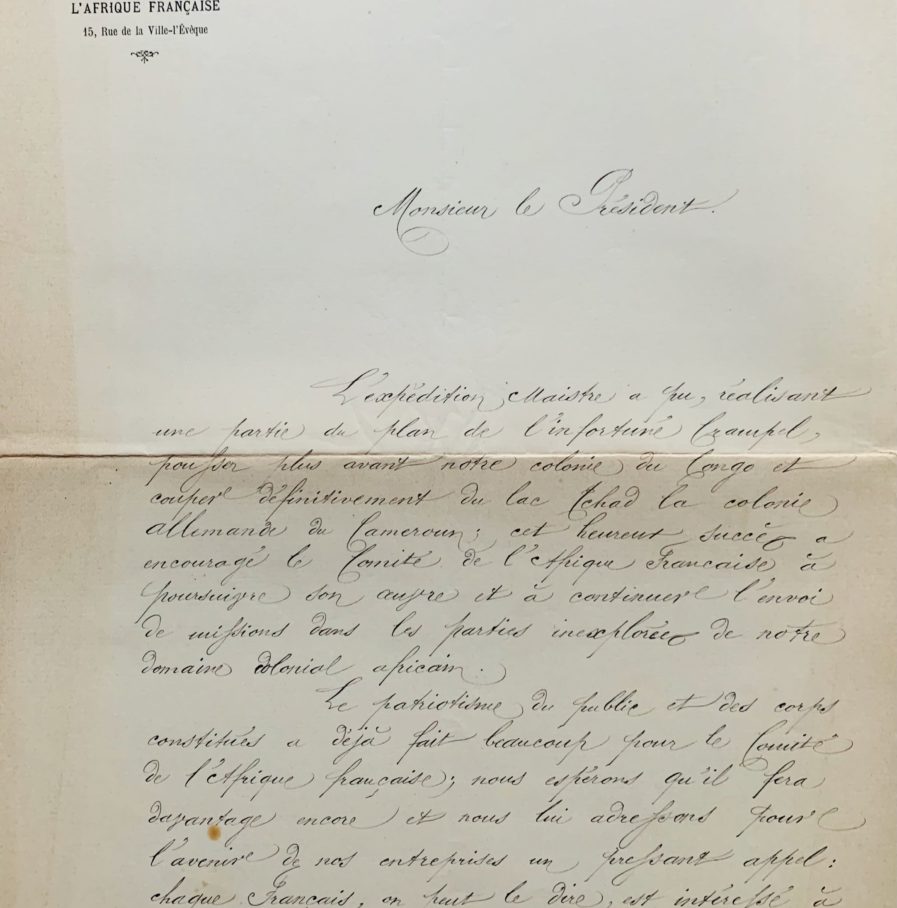 L'AFRIQUE FRANÇAISE
15, Rue de la Ville-l'Évêque
Monsieur le Président.
L'expédition Maistre a pu, réalisant
une partie du plan de l'infortuné Crampel,
pousser plus avant notre colonie du Congo et
couper définitivement du lac Tchad la colonie
allemande du Cameroun; cet heureux succès a
encouragé le Comité de l'Afrique Francaise à
poursuivre son œuvre et à continuer l'envoi
de missions dans les parties inexplorées de notre
domaine colonial africain.
Le patriotisme du public et des corps
constitués a déjà fait beaucoup pour le Comité
de l'Afrique française; nous espérons qu'il fera
davantage encore et nous lui adressons pour
l'avenir de nos entreprises un pressant appel:
chaque Français, on peut le dire, est intéressé à